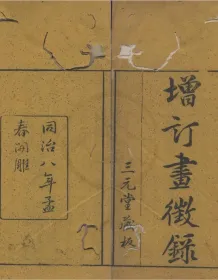 增訂畫徵錄
三元堂藏板
同治八年孟
春開雕